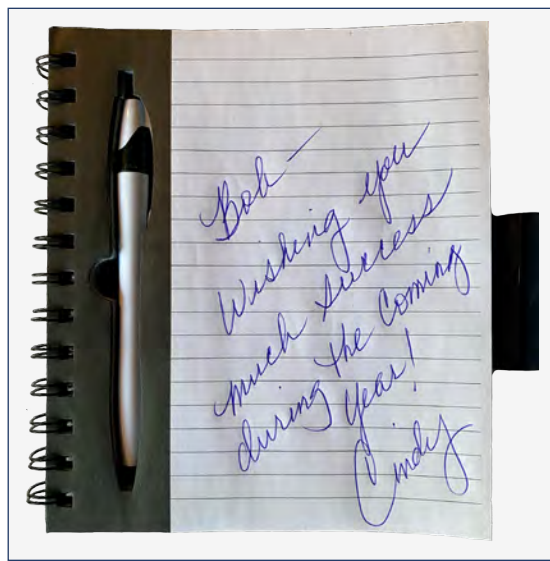 Bob —
Wishing you
much success
during the coming
year!
Cindy